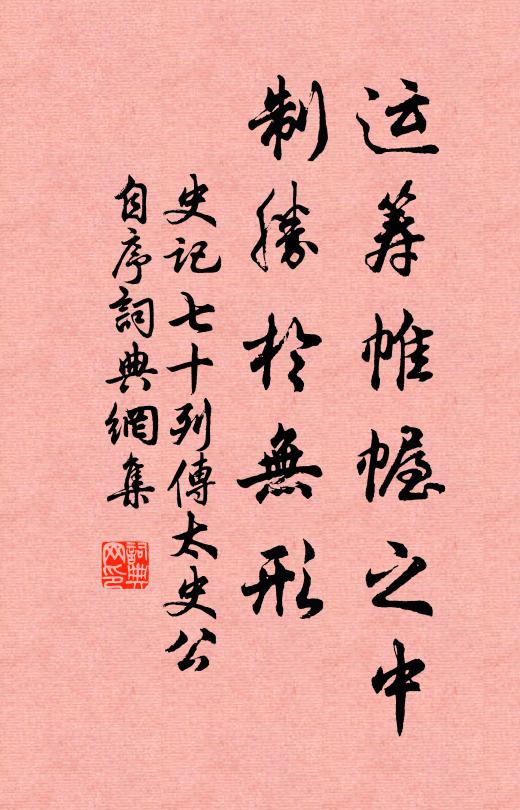 运筹帷幄之中
制勝於無形
史记七十列傳太史公
自序詞典網集
詞典
网印